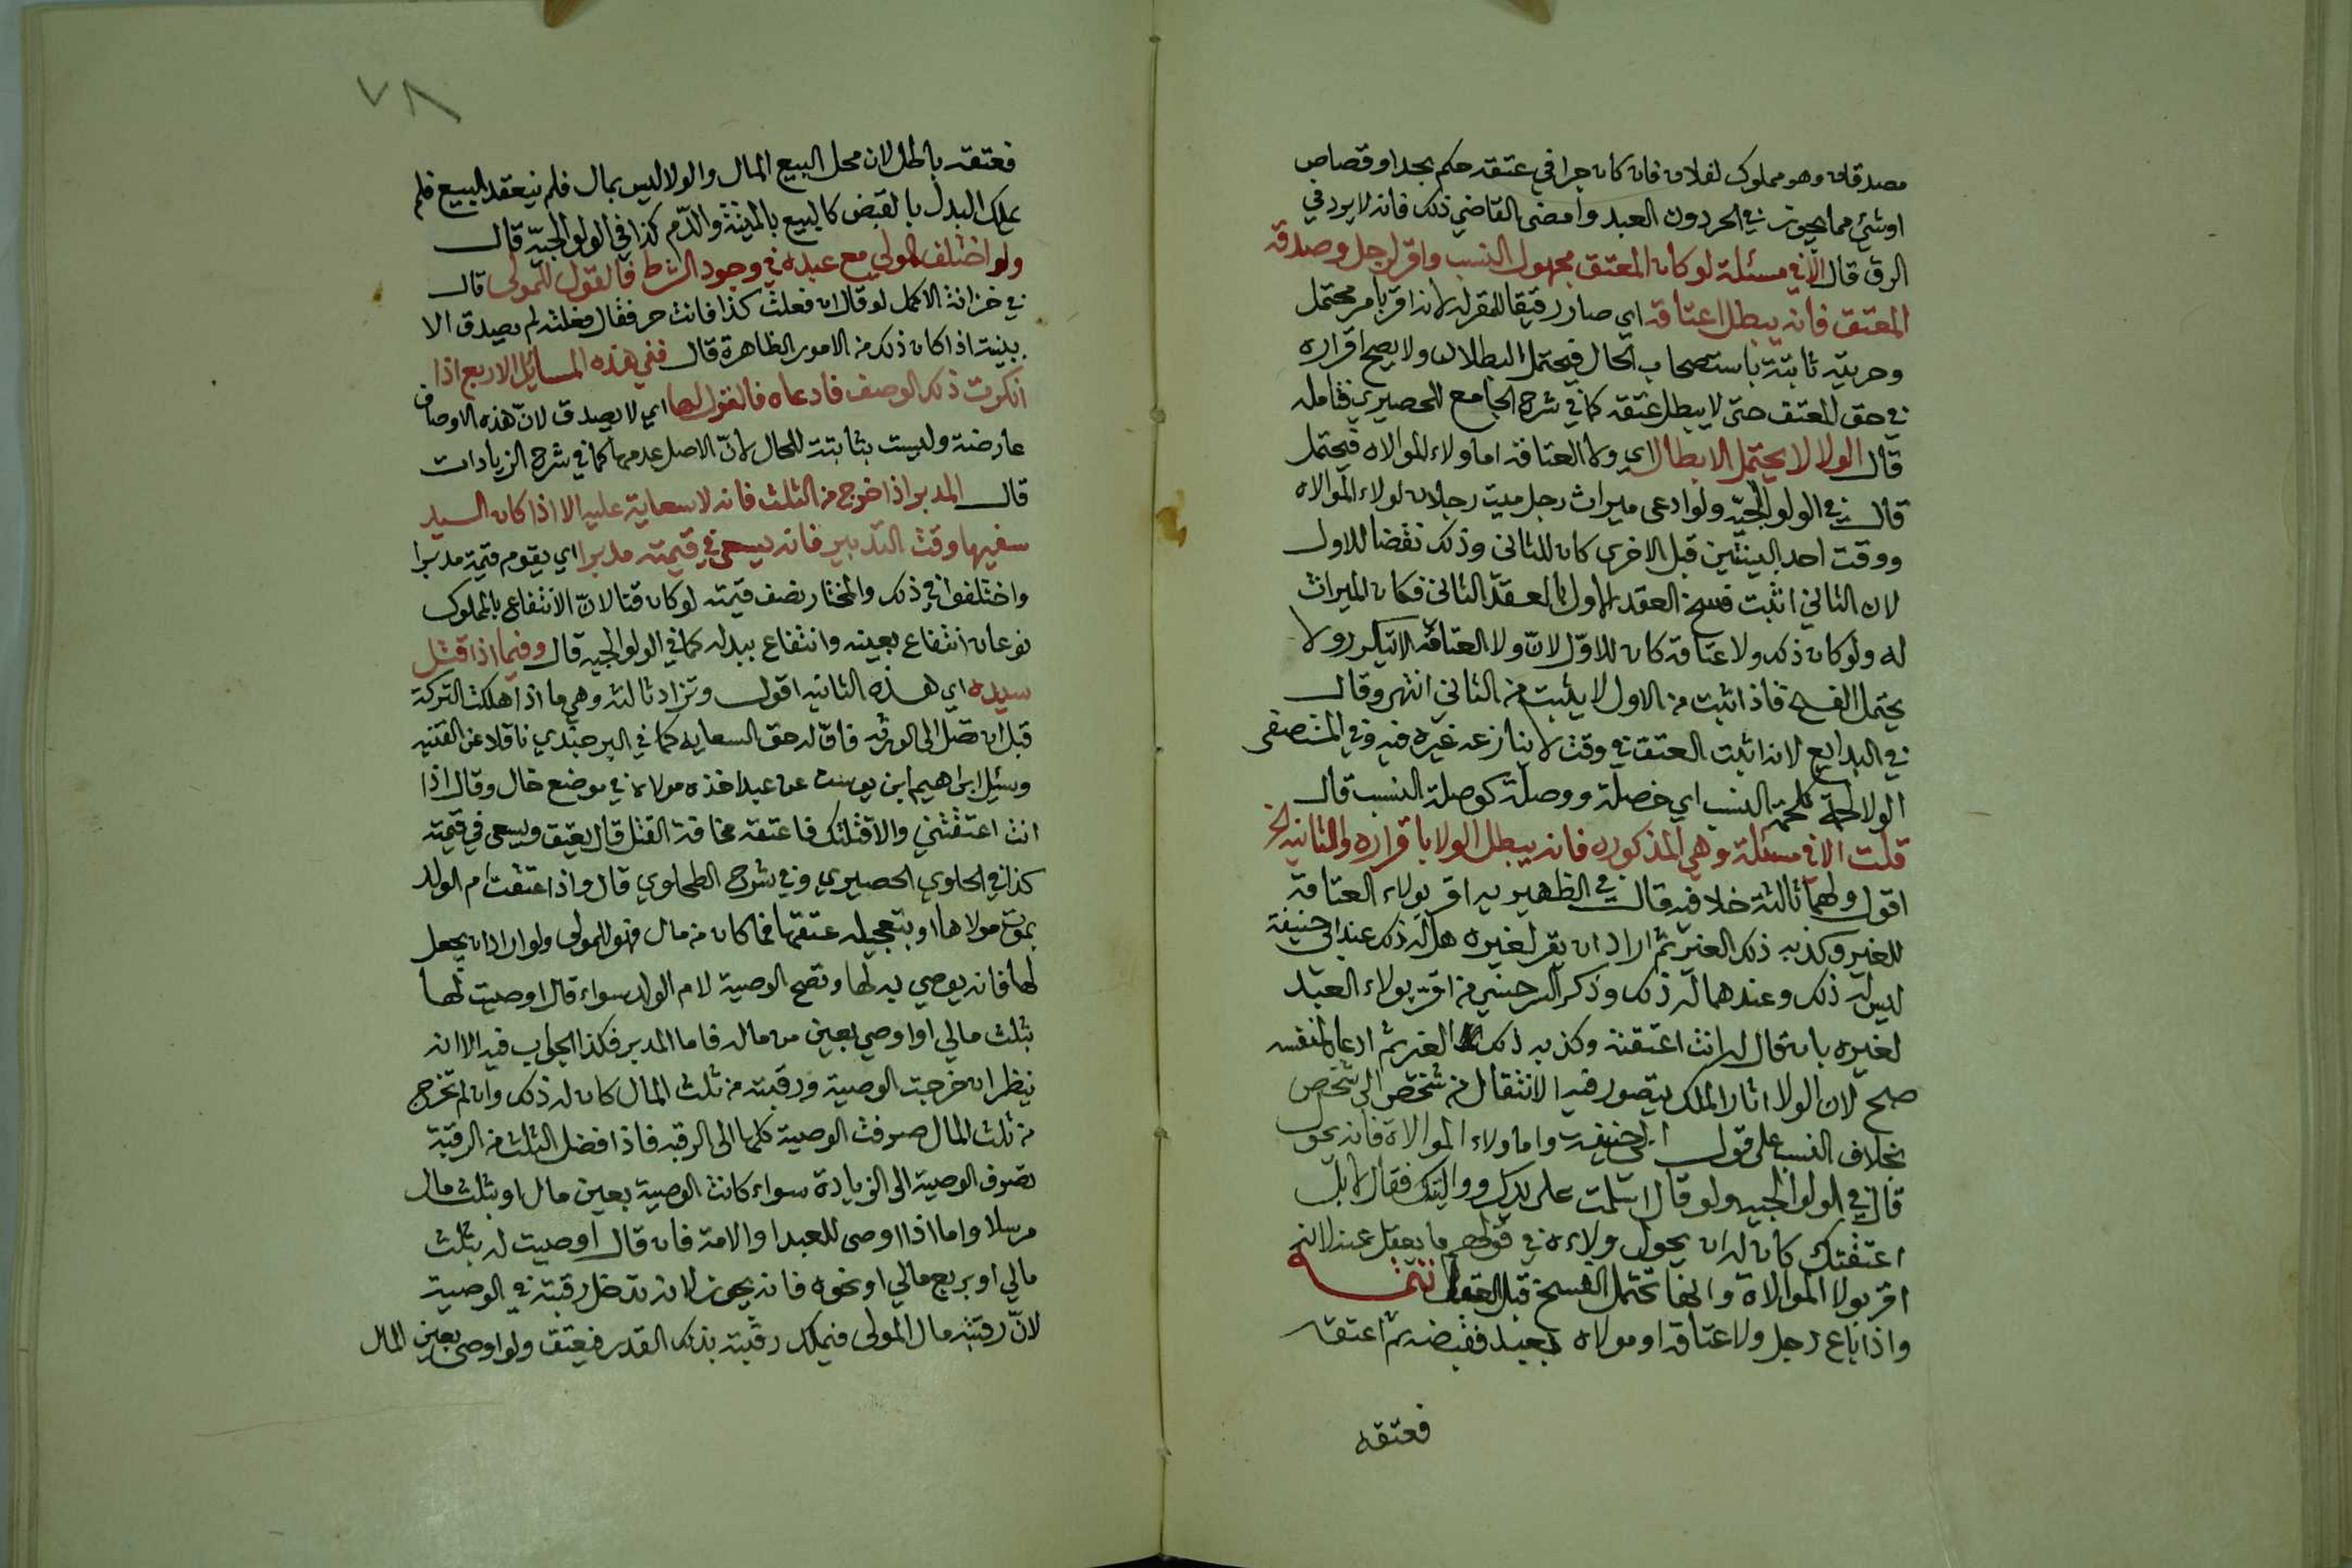 مصدقان وهو مملوك لفلان فان كان جرا في عتقه حكم بحد او قصاص
اوشئ مما يجوز في الحر دون العبد وامضى القاضي ذلك فانه لا يرد في
الرق قال الا في مسئلة لو كان المعتق مجهول النسب واقر لرجل وصدقه
المعتق فانه يبطل اعتاقه اي صار رقيقا للمقر له لانه اقر بامر محتمل
وحريته ثابتة باستصحاب الحال فيحتمل البطلان ولا يصح اقراره
في حق المعتق حتى لا يبطل عتقه كما في شرح الجامع للحصيري فتامله
قال الولا لا يحتمل الابطال اي ولا العتاقه اما ولاء الموالاه فيحتمل
قال في الولوالجيه ولو ادعى ميراث رجل ميت رجلان لولاء الموالاه
ووقت احد البينتين قبل الاخرى كان للثاني وذلك نقضا للاول
لان الثاني اثبت فسخ العقد الاول بالعقد الثاني فكان الميراث
له ولو كان ذلك ولا عتاقه كان للاول لان ولا العتاقه لا يتكرر ولا
يحتمل الفسخ فاذا ثبت من الاول لا يثبت من الثاني انتهى وقال
في البدايع لانه اثبت العتق في وقت لا ينازعه غيره فيه وفي المستصفى
الولا لحمة كلحمة النسب اي خصلة ووصلة كوصلة النسب قال
قلت الا في مسئلة وهي المذكوره فانه يبطل الولا باقراره والثانيه الخ
اقول ولهما ثالثة خلافيه قال في الظهيريه اقر بولاء العتاقة
للغير وكذبه ذلك الغير ثم اراد ان يقر لغيره هل له ذلك عند ابي حنيفة
ليس له ذلك وعندهما له ذلك وذكر السرخسي من اقر بولاء العبد
لغيره بان قال له انت اعتقته وكذبه ذلك الغير ثم ادعاه لنفسه
صح لان الولا اثار الملك يتصور فيه الانتقال من شخص الى شخص
بخلاف النسب على قول ابي حنيفه واما ولاء الموالاة فانه يحول
قال في الولوالجيه ولو قال اسلمت على يديك وواليتك فقال لا بل
اعتقتك كان له ان يحول ولاءه في قولهم ما يعقل عنه لانه
اقر بولا الموالاة وانها تحتمل الفسخ قبل العقل تتمه
واذا باع رجل ولا عتاقه او موالاه بعبد فقبضه ثم اعتقه
فعتقه
٧٨
فعتقه باطل لان محل البيع المال والولا ليس بمال فلم ينعقد البيع فلم
يملك البدل بالقبض كالبيع بالميتة والدم كذا في الولوالجيه قال
ولو اختلف المولى مع عبده في وجود الشرط فالقول للمولى قال
في خزانة الاكمل لو قال ان فعلت كذا فانت حر فقال فعلته لم يصدق الا
ببينة اذا كان ذلك من الامور الظاهرة قال ففي هذه المسائل الاربع اذا
انكرت ذلك الوصف فادعاه فالقول لها اي لا يصدق لان هذه الاوصاف
عارضة وليست بثابتة للحال لان الاصل عدمها كما في شرح الزيادات
قال المدبر اذا خرج من الثلث فانه لا سعاية عليه الا اذا كان السيد
سفيها وقت التدبير فانه يسعى في قيمته مدبرا اي يقوم قيمة مدبرا
واختلفوا في ذلك والمختار نصف قيمته لو كان قنا لان الانتفاع بالمملوك
نوعان انتفاع بعينه وانتفاع ببدله كما في الولوالجيه قال وفيما اذا قتل
سيده اي هذه الثانيه اقول وتزاد ثالثه وهي ما اذا هلكت التركة
قبل ان تصل الى الورثه فان له حق السعايه كما في البرجندي ناقلا عن القنيه
وسئل ابراهيم ابن يوسف عن عبد اخذه مولاه في موضع خال وقال اذا
انت اعتقتني والا قتلتك فاعتقه مخافة القتل قال يعتق ويسعى في قيمته
كذا في الحاوي الحصيري وفي شرح الطحاوي قال واذا عتقت ام الولد
بموت مولاها او بتعجيله عتقها فما كان من مال فهو للمولى ولو اراد ان يجعل
لها فانه يوصي به لها وتصح الوصية لام الولد سواء قال اوصيت لها
بثلث مالي او اوصي بعين من ماله فاما المدبر فكذا الجواب فيه الا انه
ينظر ان خرجت الوصية ورقبته من ثلث المال كان له ذلك وان لم تخرج
من ثلث المال صرفت الوصية كلها الى الرقبه فاذا فضل الثلث من الرقبة
تصرف الوصية الى الزيادة سواء كانت الوصية بعين مال او بثلث مال
مرسلا واما اذا اوصى للعبد او الامة فان قال اوصيت له بثلث
مالي او بربع مالي او نحوه فانه يجوز لانه تدخل رقبته في الوصية
لان رقبته مال المولى فيملك رقبته بذلك القدر فيعتق ولو اوصى بعين المال